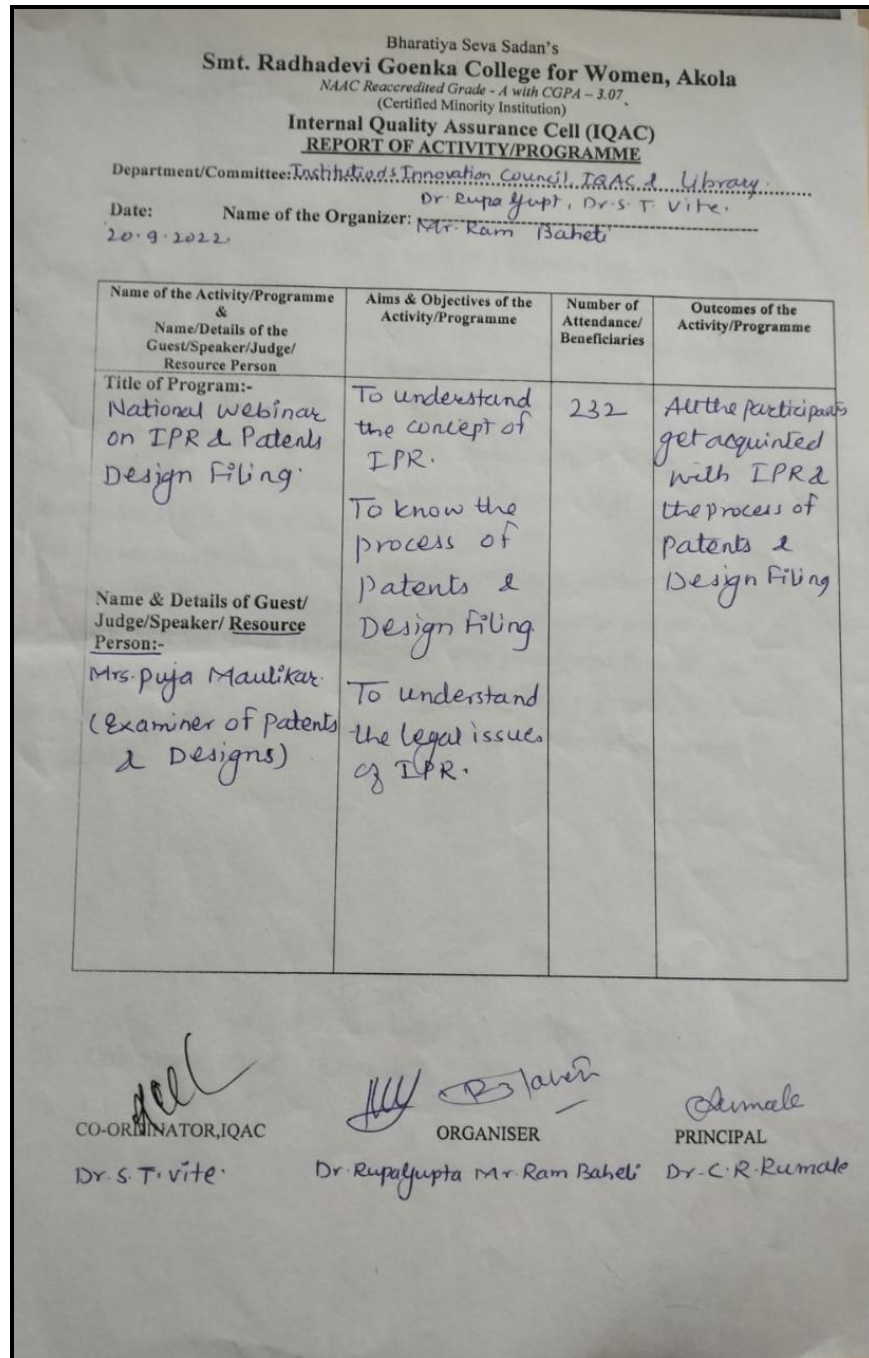 Bharatiya Seva Sadan's
Smt. Radhadevi Goenka College for Women, Akola
NAAC Reaccredited Grade - A with CGPA – 3.07
(Certified Minority Institution)
Internal Quality Assurance Cell (IQAC)
REPORT OF ACTIVITY/PROGRAMME
Department/Committee: Institution's Innovation Council, IQAC & Library.
Dr. Rupa Gupt, Dr. S. T. Vite.
Date: Name of the Organizer: Mr. Ram Baheti
20.9.2022.
Name of the Activity/Programme
&
Name/Details of the
Guest/Speaker/Judge/
Resource Person
Aims & Objectives of the
Activity/Programme
Number of
Attendance/
Beneficiaries
Outcomes of the
Activity/Programme
Title of Program:-
National webinar
on IPR & Patents
Design Filing.
Name & Details of Guest/
Judge/Speaker/ Resource
Person:-
Mrs. Puja Maulikar.
(Examiner of Patents
& Designs)
To understand
the concept of
IPR.
To know the
process of
Patents &
Design Filing.
To understand
the legal issues
of IPR.
232
All the participants
get acquinted
with IPR &
the process of
Patents &
Design Filing
CO-ORDINATOR,IQAC
Dr. S. T. Vite.
ORGANISER
Dr. Rupa Gupta Mr. Ram Baheti
PRINCIPAL
Dr. C. R. Rumale